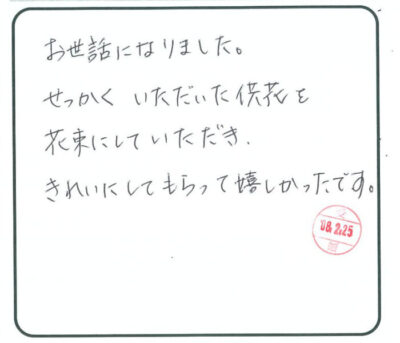 お世話になりました。
せっかく いただいた供花を
花束にしていただき、
きれいにしてもらって嬉しかったです。
08.2.25